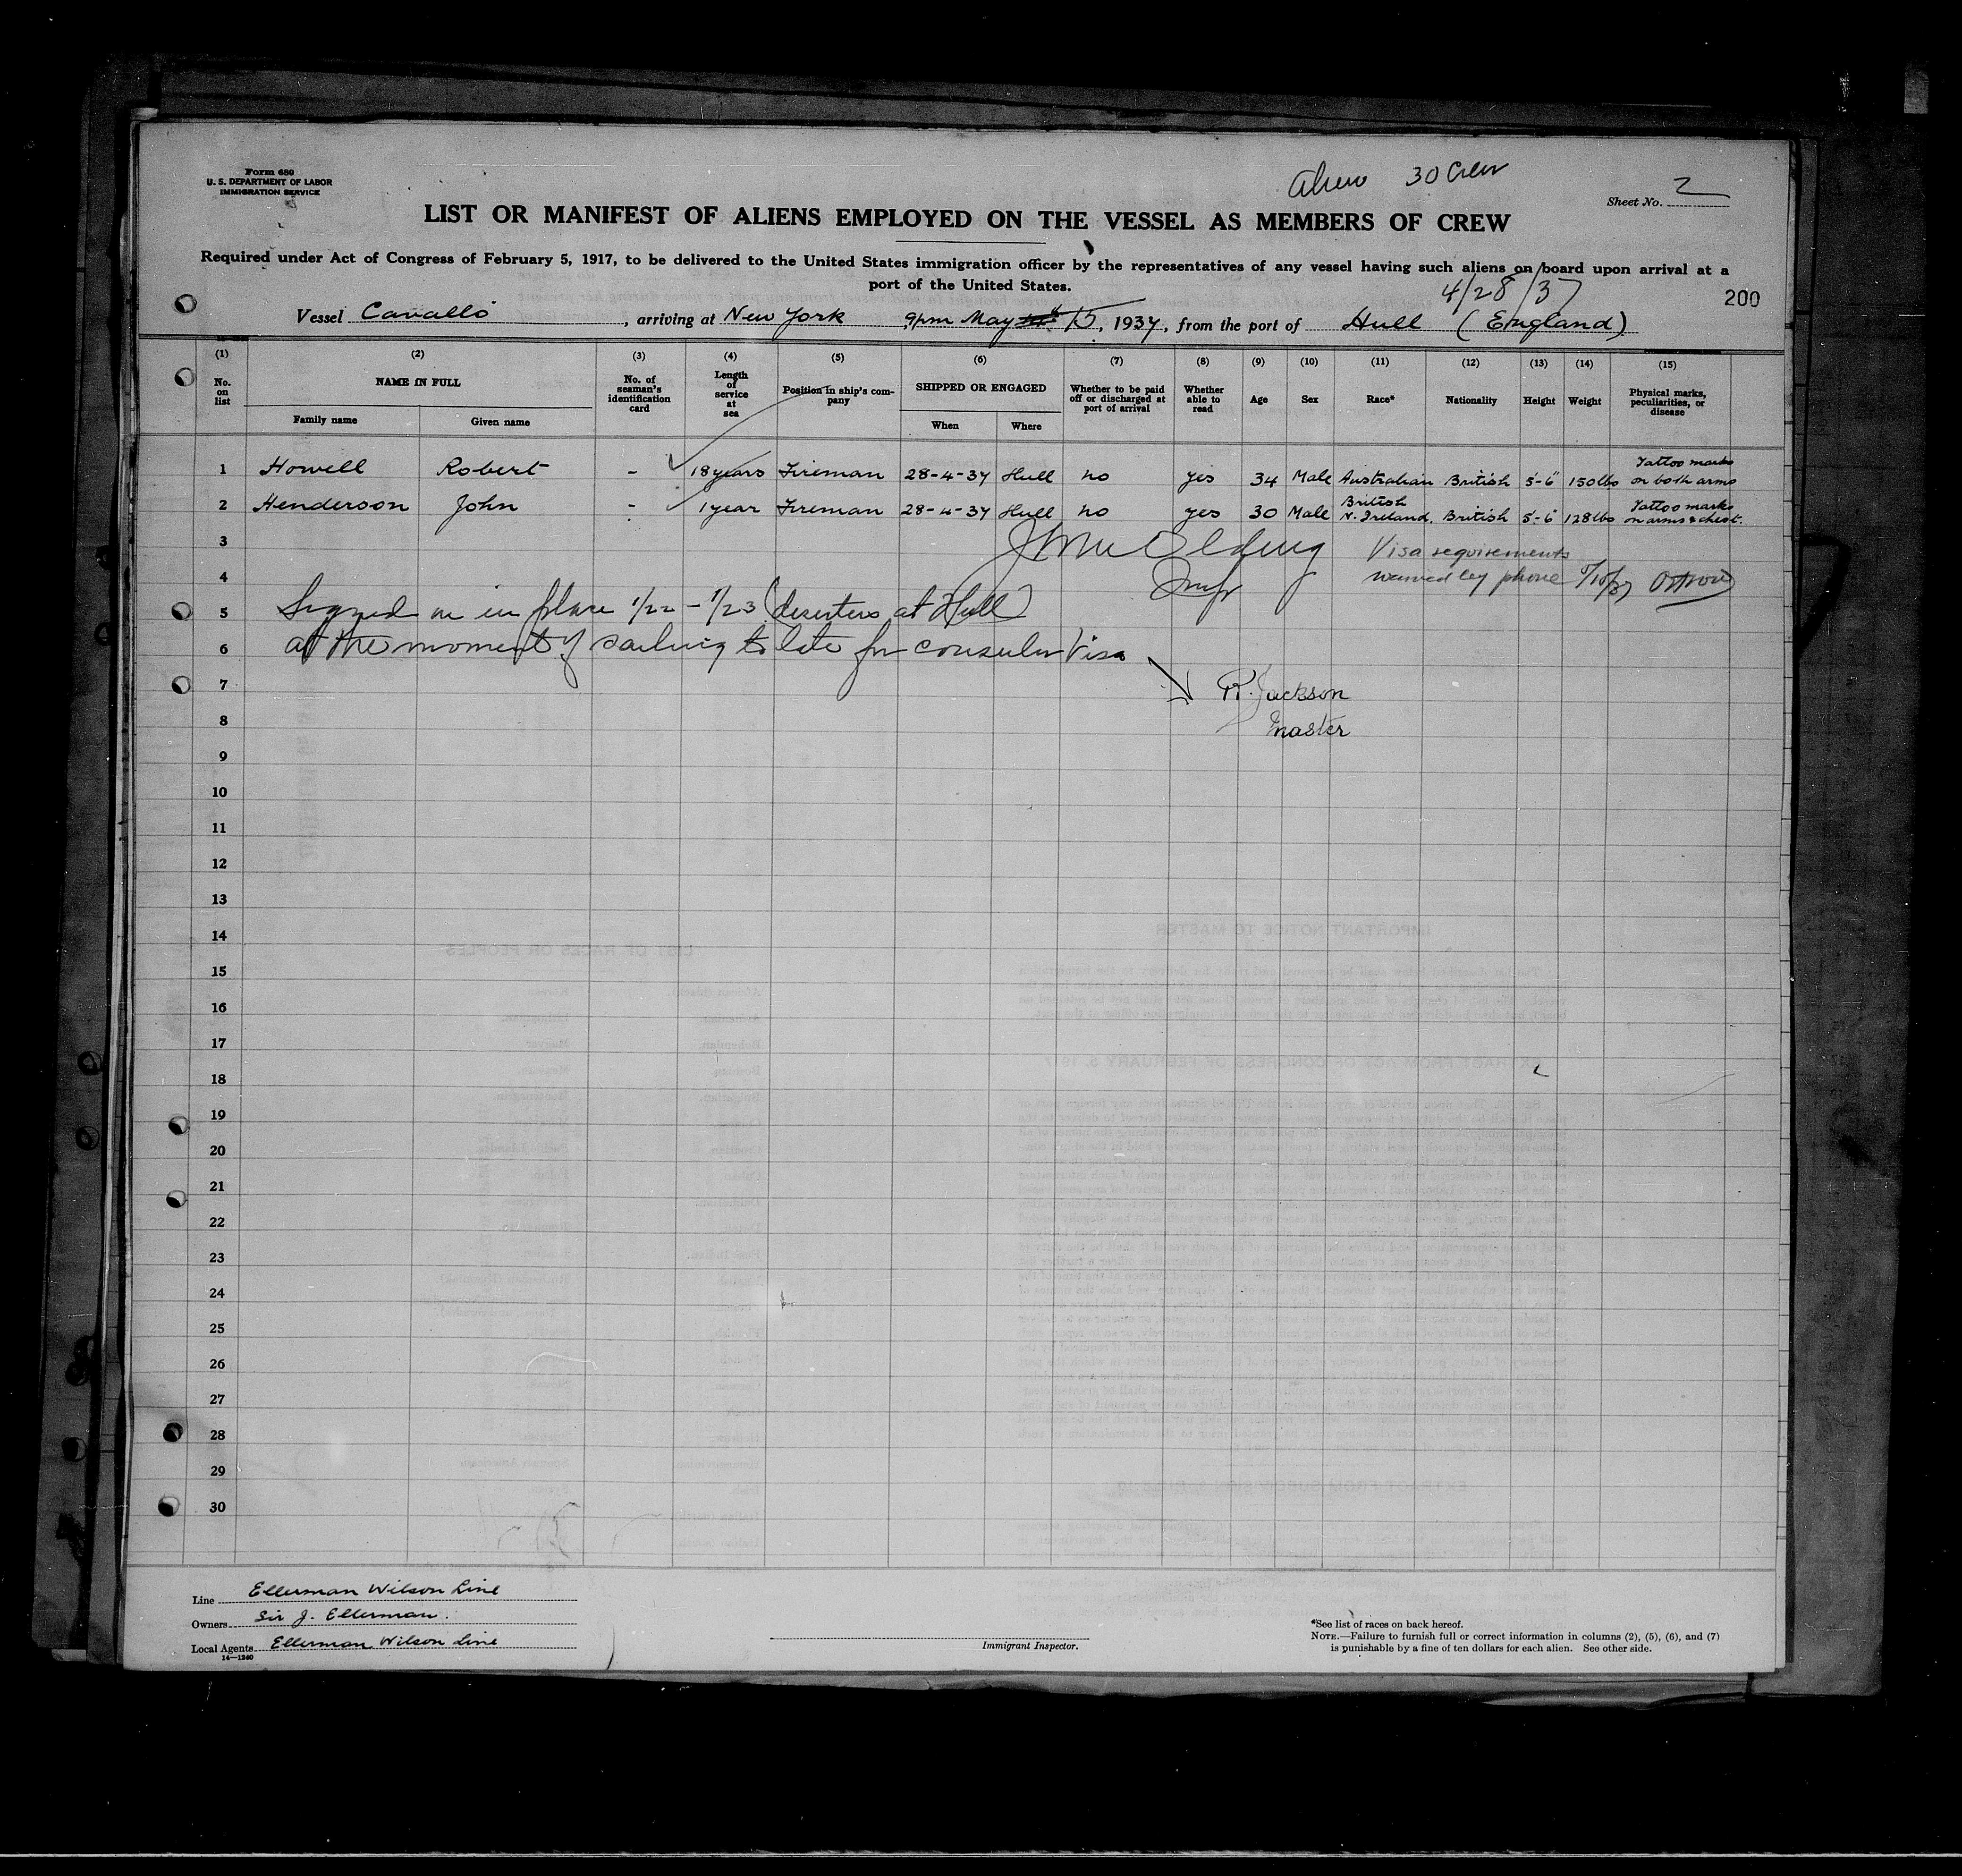 Form 680
U. S. DEPARTMENT OF LABOR
IMMIGRATION SERVICE
Alien 30 Crew
Sheet No. 2
LIST OR MANIFEST OF ALIENS EMPLOYED ON THE VESSEL AS MEMBERS OF CREW
Required under Act of Congress of February 5, 1917, to be delivered to the United States immigration officer by the representatives of any vessel having such aliens on board upon arrival at a
port of the United States.
4/28/37
200
Vessel Cavallo, arriving at New York 9pm May 15, 1937, from the port of Hull (England)
(1) (2) (3) (4) (5) (6) (7) (8) (9) (10) (11) (12) (13) (14) (15)
No. on list
NAME IN FULL
Family name
Given name
No. of seaman's identification card
Length of service at sea
Position in ship's company
SHIPPED OR ENGAGED
When
Where
Whether to be paid off or discharged at port of arrival
Whether able to read
Age
Sex
Race*
Nationality
Height
Weight
Physical marks, peculiarities, or disease
1 Howell Robert - 18 years Fireman 28-4-37 Hull no yes 34 Male Australian British 5-6" 150 lbs Tattoo marks on both arms
2 Henderson John - 1 year Fireman 28-4-37 Hull no yes 30 Male British N. Ireland. British 5-6 128 lbs Tattoo marks on arms & chest.
3 Visa requirements
4 waived by phone
5 Signed on in place 1/22 - 1/23 (deserters at Hull)
6 at the moment of sailing to late for consular Visa
7 R. Jackson
8 Master
9
10
11
12
13
14
15
16
17
18
19
20
21
22
23
24
25
26
27
28
29
30
Line Ellerman Wilson Line
Owners Sir J. Ellerman.
Local Agents Ellerman Wilson Line
14—1240
Immigrant Inspector.
*See list of races on back hereof.
NOTE.—Failure to furnish full or correct information in columns (2), (5), (6), and (7)
is punishable by a fine of ten dollars for each alien. See other side.